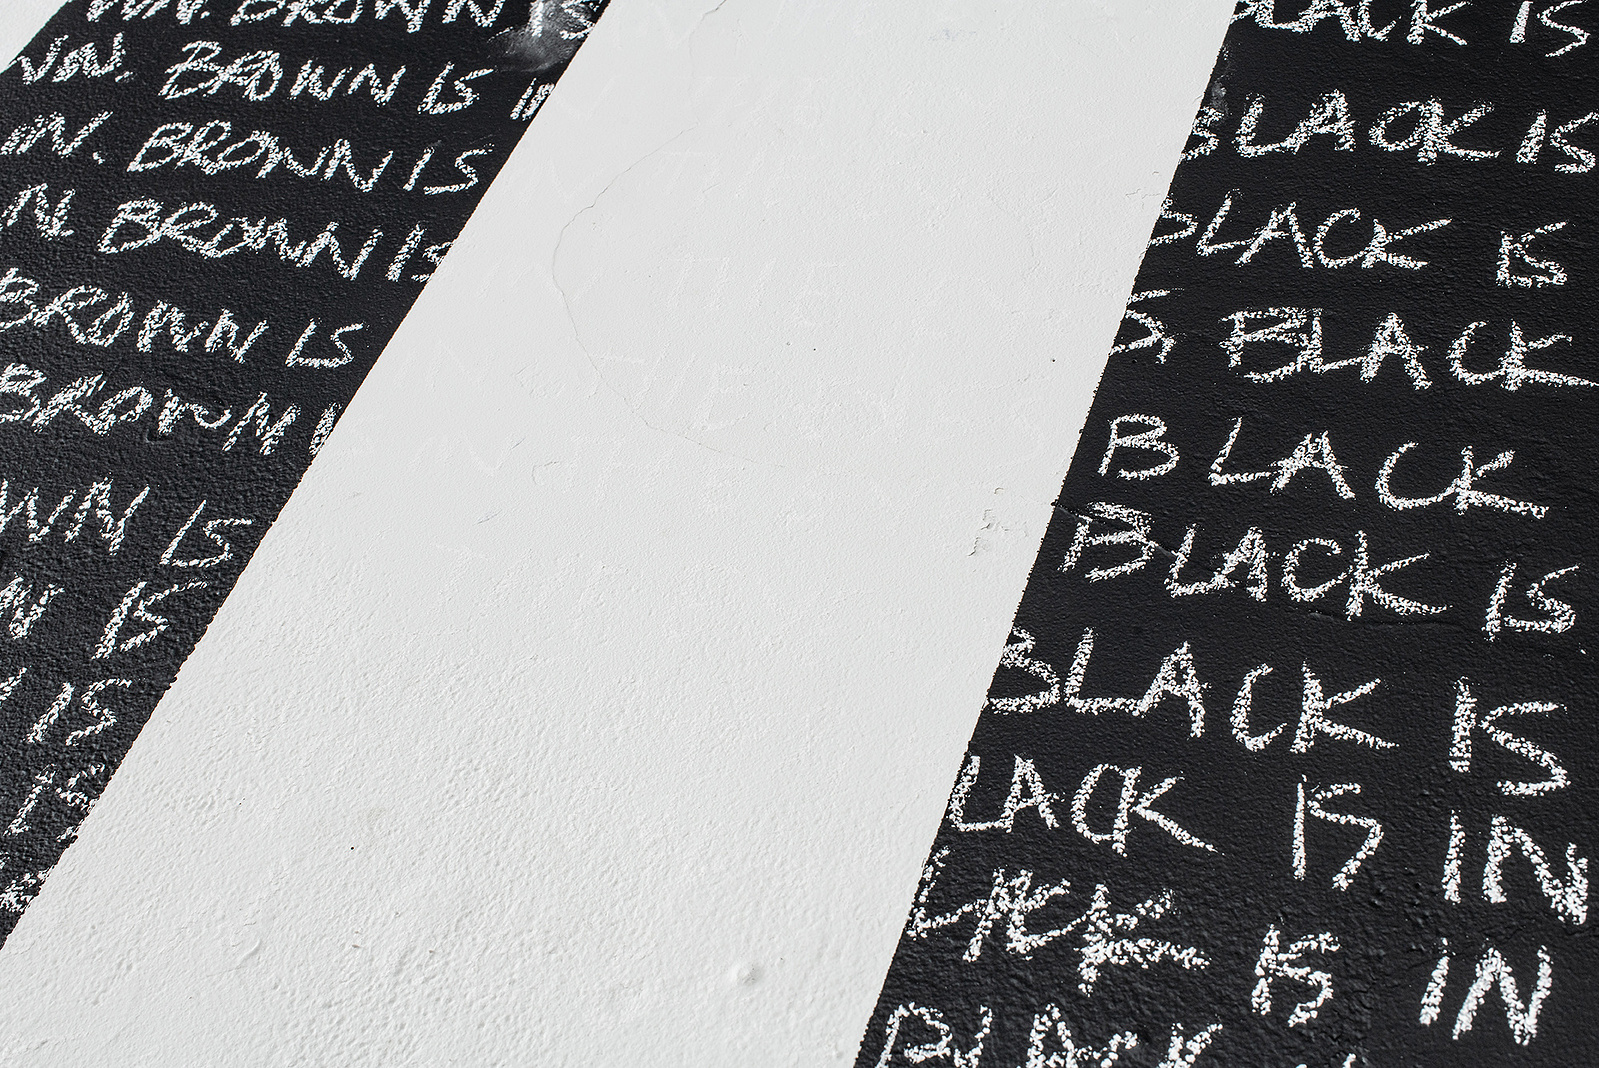 BROWN
BROWN IS IN
IN. BROWN IS
N. BROWN IS
BROWN IS
BROWN
WN IS
N IS
IS
IS
BLACK IS
BLACK IS
BLACK IS
S, BLACK
BLACK
BLACK IS
BLACK IS
LACK IS IN
LACK IS IN
BLACK